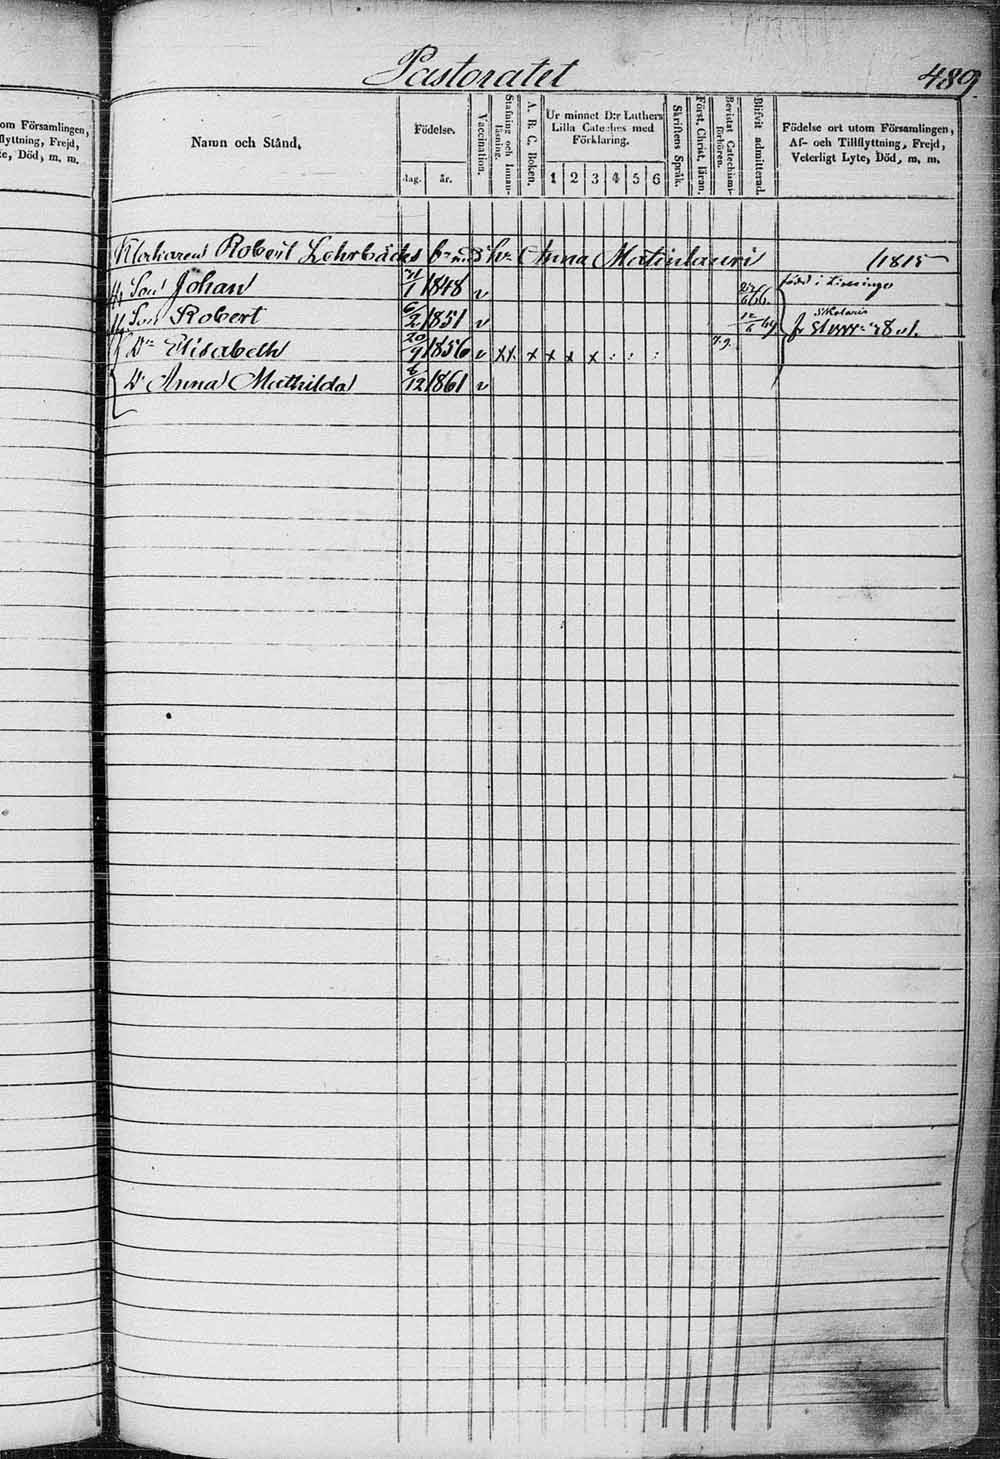 Pastoratet
489
om Församlingen,
flyttning, Frejd,
te, Död, m. m.
Namn och Stånd,
Födelse.
dag.
år.
Vaccination.
Stafning och Innan-
läsning.
A. B. C. Boken.
Ur minnet D:r Luthers
Lilla Cateches med
Förklaring.
1 2 3 4 5 6
Skriftens Språk.
Först. Christ. läran.
Bevistat Catechismi-
förhören.
Blifvit admitterad.
Födelse ort utom Församlingen,
Af- och Tillflyttning, Frejd,
Veterligt Lyte, Död, m. m.
Robert Lehrbäcks Anna 1815
Son Johan 1848 v född i
Son Robert 6/2 1851 v
Dr Elisabeth 20/9 1856 v xx x x x x : : :
Dr Anna Mathilda 6/12 1861 v